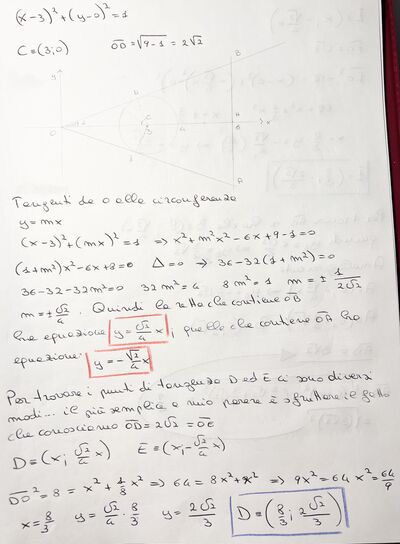 (x-3)²+(y-0)²=1
C=(3;0) OD=√9-1 = 2√2
y
B
C
O
3
4
H
x
A
Tangenti da O alla circonferenza
y=mx
(x-3)²+(mx)²=1 => x²+m²x²-6x+9-1=0
(1+m²)x²-6x+8=0 Δ=0 → 36-32(1+m²)=0
36-32-32m²=0 32m²=4 8m²=1 m=± 1/2√2
m=±√2/4. Quindi la retta che contiene OB
ha equazione y=√2/4 x, quella che contiene OA ha
equazione: y=-√2/4 x
Per trovare i punti di tangenza D ed E ci sono diversi
modi... il più semplice a mio parere è sfruttare il fatto
che conosciamo OD=2√2=OE
D=(x; √2/4 x) E=(x;-√2/4 x)
DO²=8=x²+1/8x² => 64=8x²+x² => 9x²=64 x²=64/9
x=8/3 y=√2/4·8/3 y=2√2/3 D=(8/3; 2√2/3)